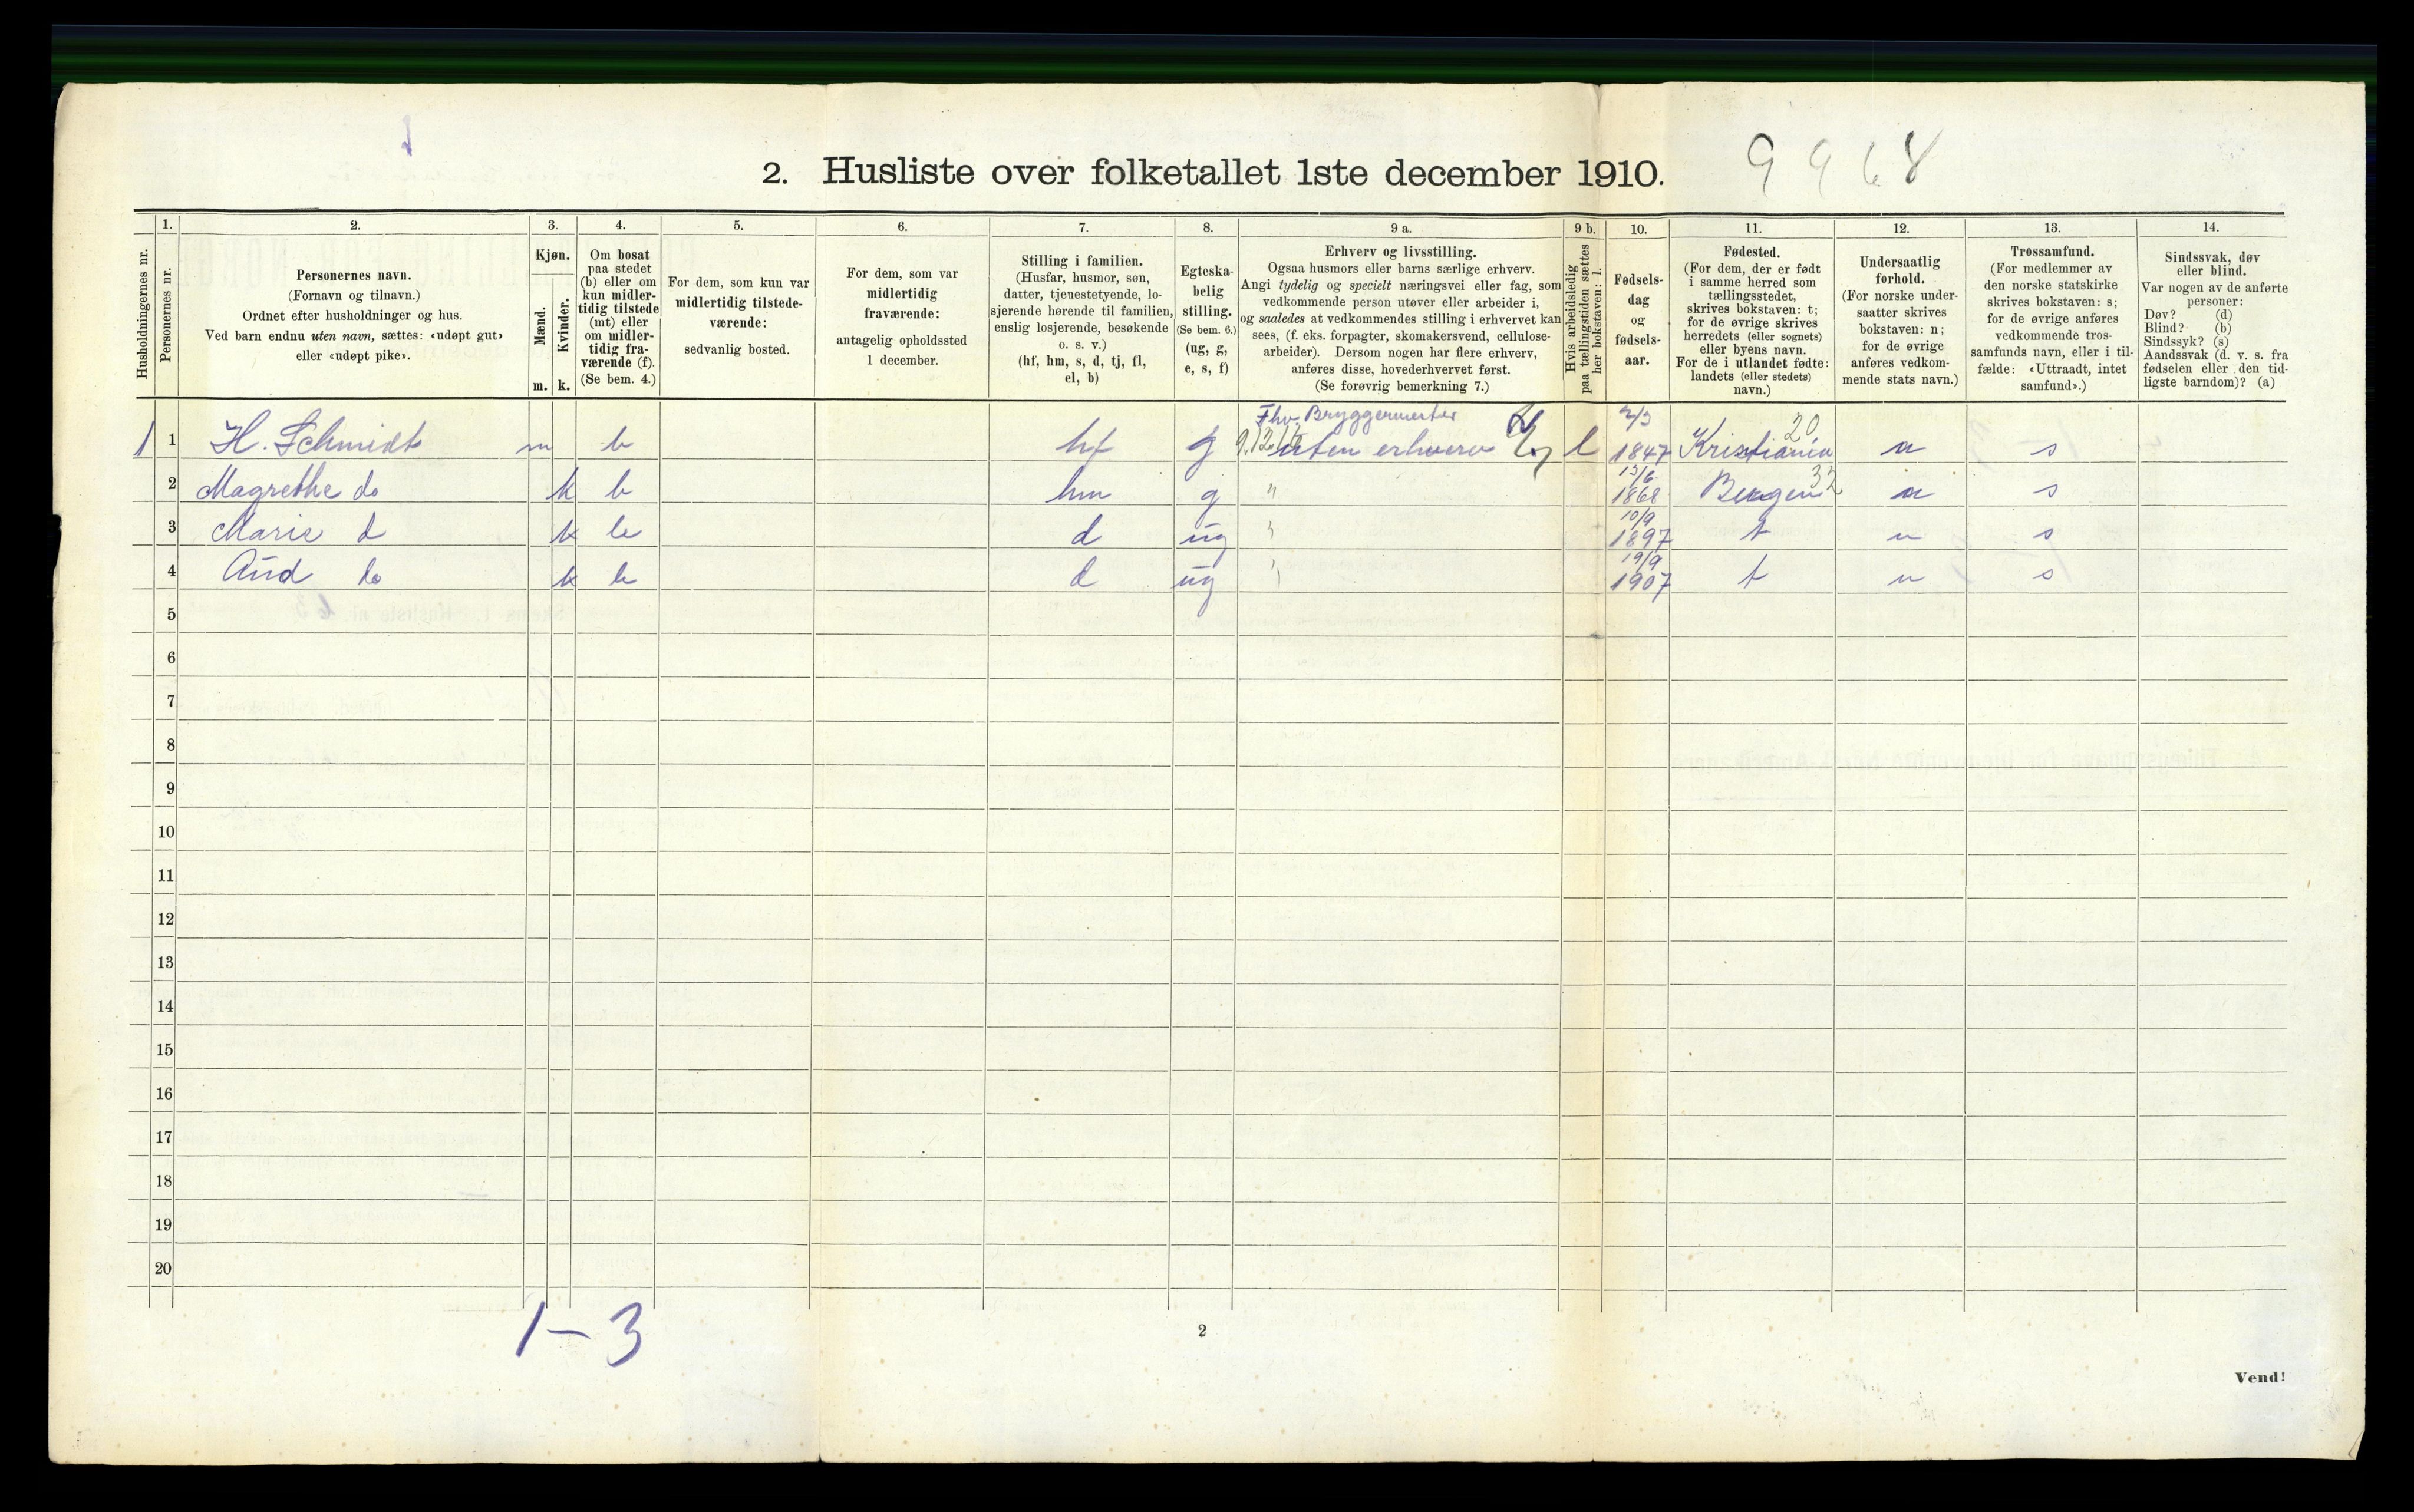 2. Husliste over folketallet 1ste december 1910.
9968
Husholdningernes nr.
1.
Personernes nr.
2.
Personernes navn.
(Fornavn og tilnavn.)
Ordnet efter husholdninger og hus.
Ved barn endnu uten navn, sættes: «udøpt gut»
eller «udøpt pike».
3.
Kjøn.
Mænd.
Kvinder.
m. k.
4.
Om bosat
paa stedet
(b) eller om
kun midler-
tidig tilstede
(mt) eller
om midler-
tidig fra-
værende (f).
(Se bem. 4.)
5.
For dem, som kun var
midlertidig tilstede-
værende:
sedvanlig bosted.
6.
For dem, som var
midlertidig
fraværende:
antagelig opholdssted
1 december.
7.
Stilling i familien.
(Husfar, husmor, søn,
datter, tjenestetyende, lo-
sjerende hørende til familien,
enslig losjerende, besøkende
o. s. v.)
(hf, hm, s, d, tj, fl,
el, b)
8.
Egteska-
belig
stilling.
(Se bem. 6.)
(ug, g,
e, s, f)
9 a.
Erhverv og livsstilling.
Ogsaa husmors eller barns særlige erhverv.
Angi tydelig og specielt næringsvei eller fag, som
vedkommende person utøver eller arbeider i,
og saaledes at vedkommendes stilling i erhvervet kan
sees, (f. eks. forpagter, skomakersvend, cellulose-
arbeider). Dersom nogen har flere erhverv,
anføres disse, hovederhvervet først.
(Se forøvrig bemerkning 7.)
9 b.
Hvis arbeidsledig
paa tællingstiden sættes
her bokstaven: l.
10.
Fødsels-
dag
og
fødsels-
aar.
11.
Fødested.
(For dem, der er født
i samme herred som
tællingsstedet,
skrives bokstaven: t;
for de øvrige skrives
herredets (eller sognets)
eller byens navn.
For de i utlandet fødte:
landets (eller stedets)
navn.)
12.
Undersaatlig
forhold.
(For norske under-
saatter skrives
bokstaven: n;
for de øvrige
anføres vedkom-
mende stats navn.)
13.
Trossamfund.
(For medlemmer av
den norske statskirke
skrives bokstaven: s;
for de øvrige anføres
vedkommende tros-
samfunds navn, eller i til-
fælde: «Uttraadt, intet
samfund».)
14.
Sindssvak, døv
eller blind.
Var nogen av de anførte
personer:
Døv? (d)
Blind? (b)
Sindssyk? (s)
Aandssvak (d. v. s. fra
fødselen eller den tid-
ligste barndom)? (a)
Fhv. Bryggermester 2/3 20
1 1 H. Schmidt m b hf g uten erhverv l 1847 Kristiania n s
13/6 32
2 Magrethe do k b hm g " 1868 Bergen n s
10/9
3 Marie d k b d ug " 1897 t n s
19/9
4 Aud do k b d ug " 1907 t n s
5
6
7
8
9
10
11
12
13
14
15
16
17
18
19
20
1-3
2
Vend!